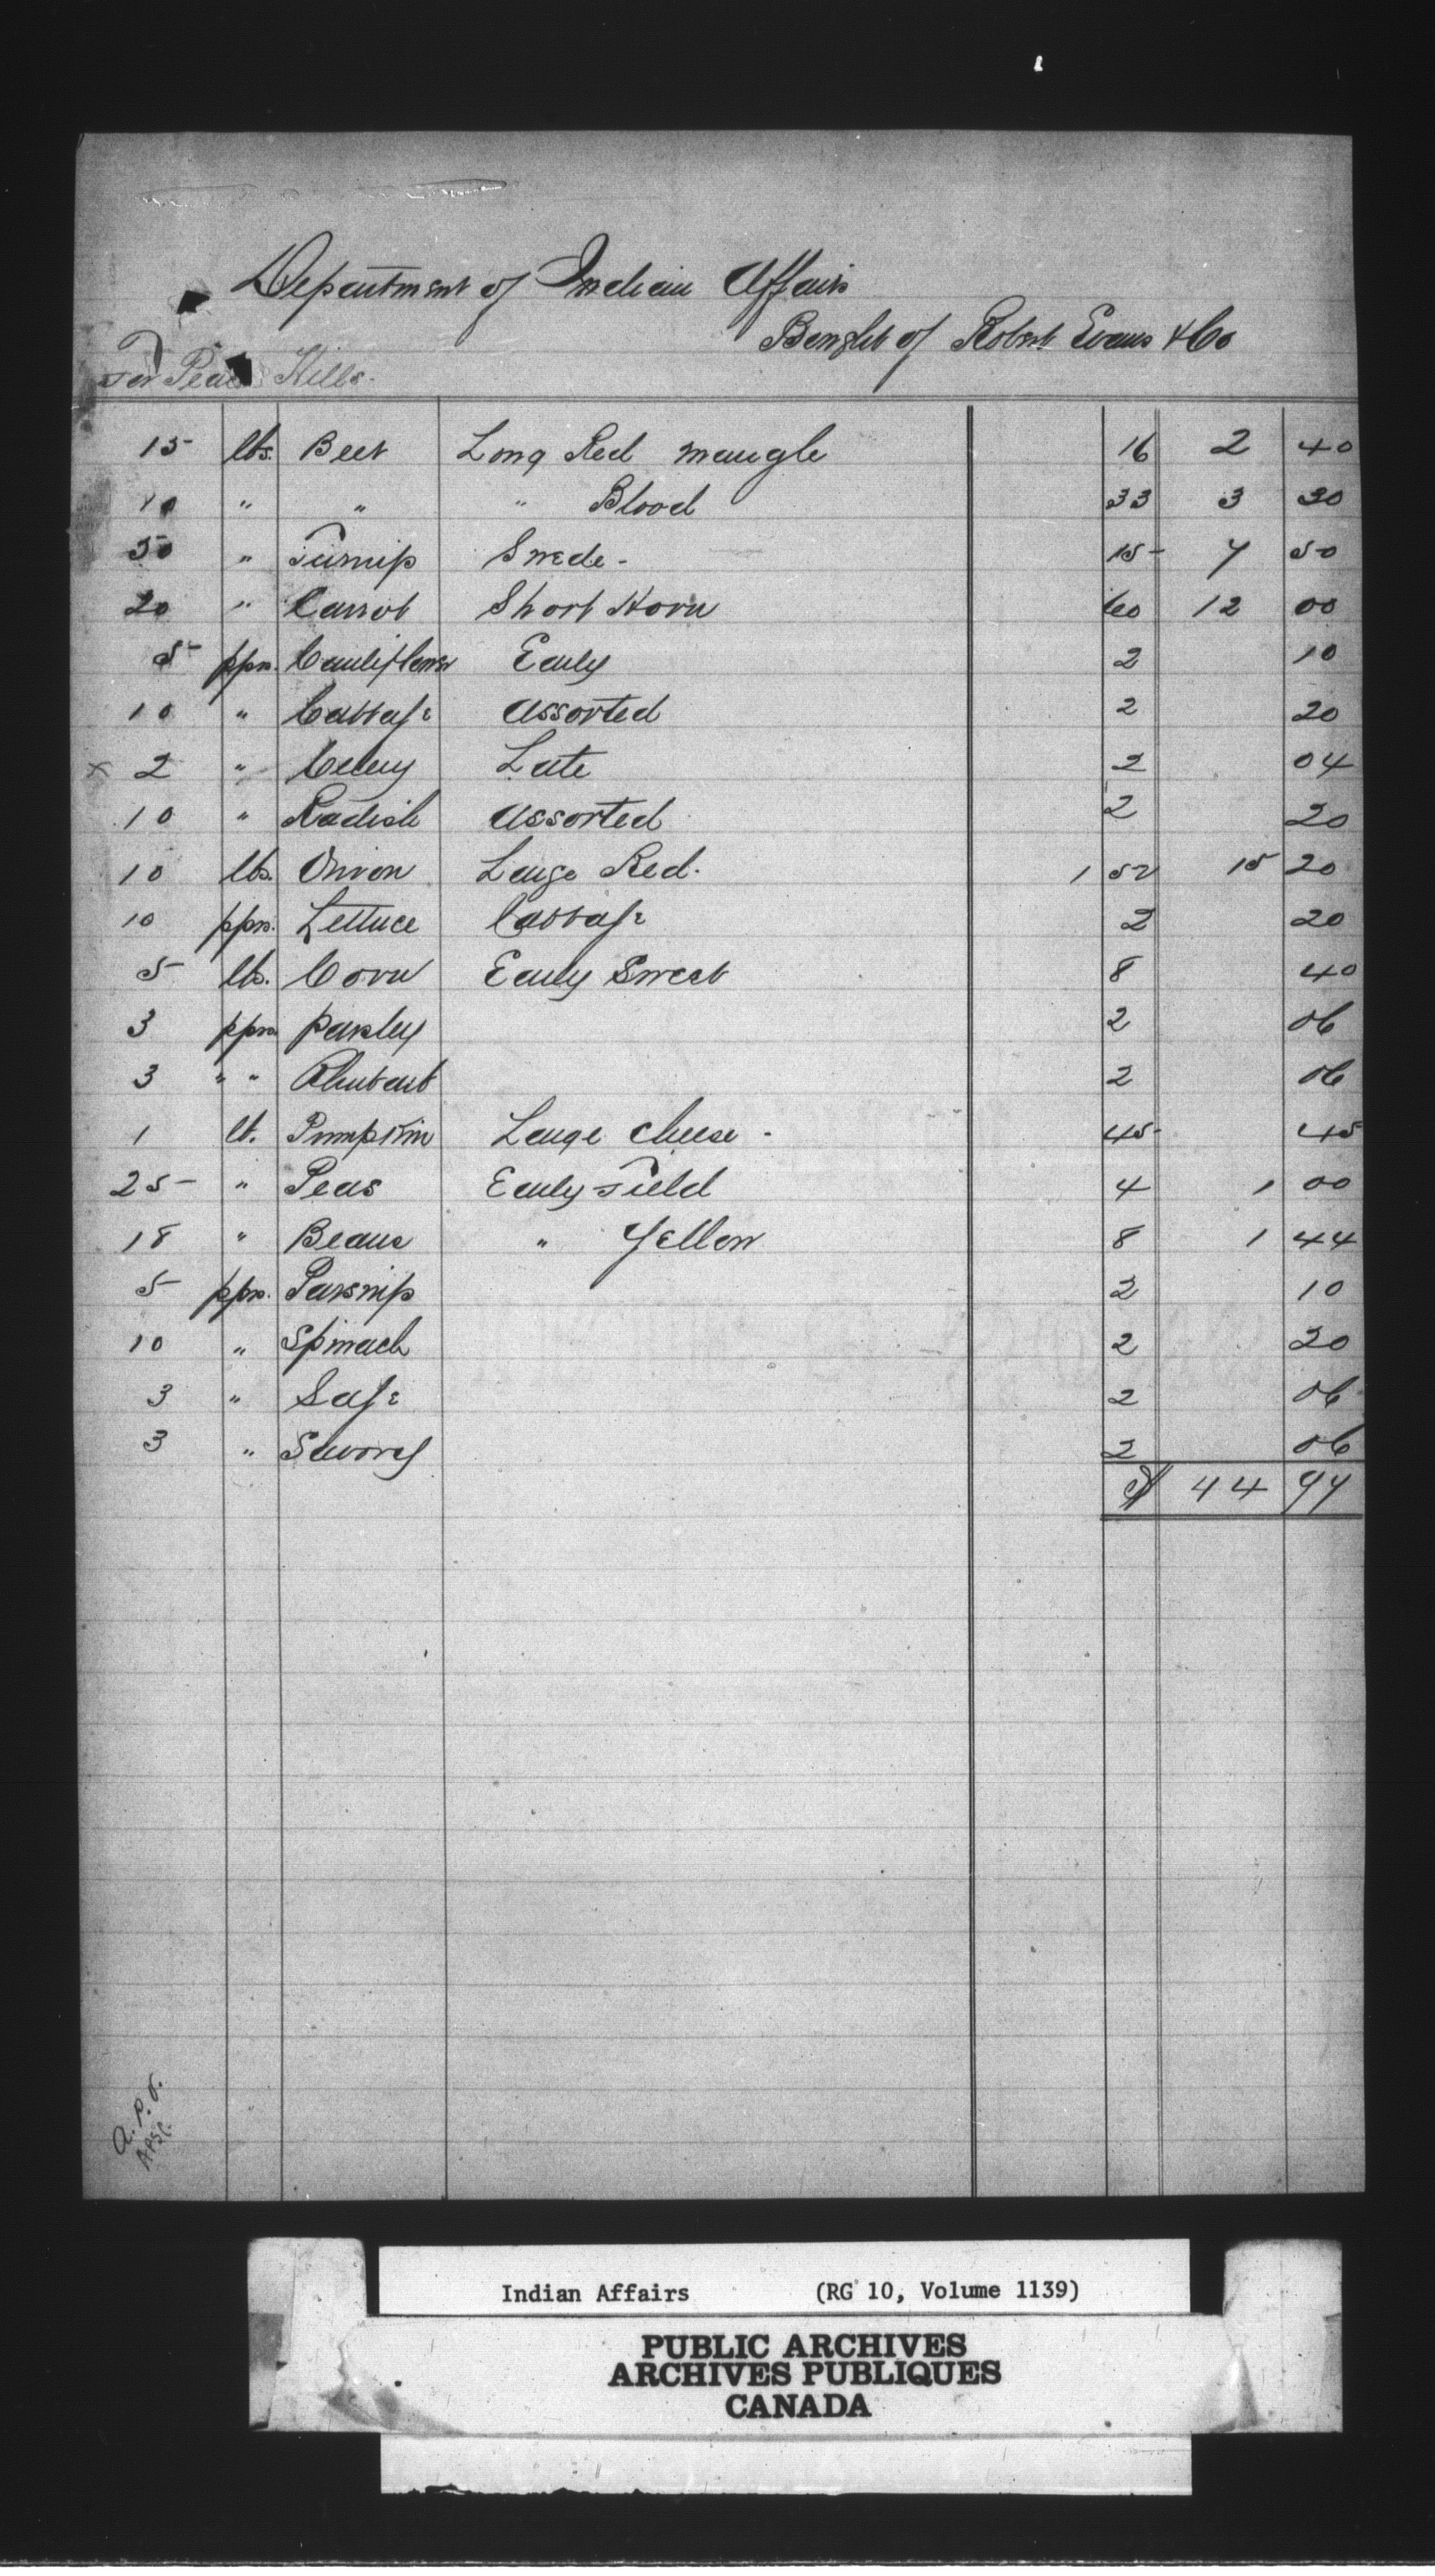 Department of Indian Affairs
Bought of Robert Evans & Co
For Peace Hills.
15 lbs. Beet Long Red Mangle 16 2 40
10 " " " Blood 33 3 30
50 " Turnip Swede - 15 7 50
20 " Carrot Short Horn 60 12 00
5 pprs. Cauliflower Early 2 10
10 " Cabbage Assorted 2 20
x 2 " Celery Late 2 04
10 " Radish Assorted 2 20
10 lbs. Onion Large Red. 1 52 15 20
10 pprs. Lettuce Cabbage 2 20
5 lbs. Corn Early Sweet 8 40
3 pprs Parsley 2 06
3 " " Rhubarb 2 06
1 lb. Pumpkin Large Cheese - 45 45
25 " Peas Early Field 4 1 00
18 " Beans " Yellow 8 1 44
5 pprs. Parsnip 2 10
10 " Spinach 2 20
3 " Sage 2 06
3 " Savory 2 06
$ 44 97
Indian Affairs (RG 10, Volume 1139)
PUBLIC ARCHIVES
ARCHIVES PUBLIQUES
CANADA